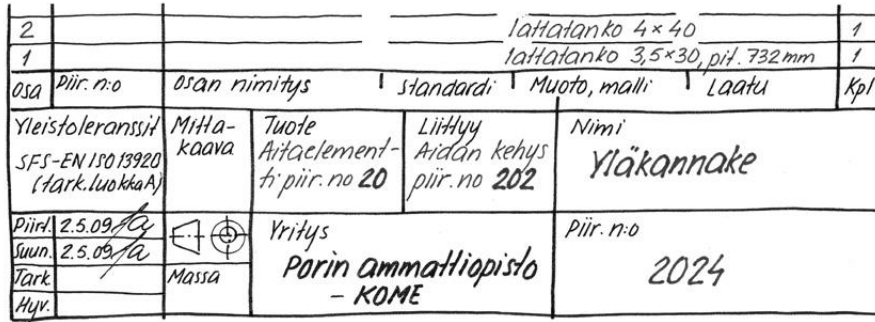 2 lattatanko 4×40 1
1 lattatanko 3,5×30, pit. 732mm 1
Osa Piir. n:o Osan nimitys standardi Muoto, malli Laatu Kpl
Yleistoleranssit
SFS-EN ISO 13920
(tark.luokka A)
Mitta-
kaava
Tuote
Aitaelement-
ti piir. no 20
Liittyy
Aidan kehys
piir. no 202
Nimi
Yläkannake
Piirt. 2.5.09
Suun. 2.5.09
Tark
Hyv.
Massa
Yritys
Porin ammattiopisto
- KOME
Piir. n:o
2024